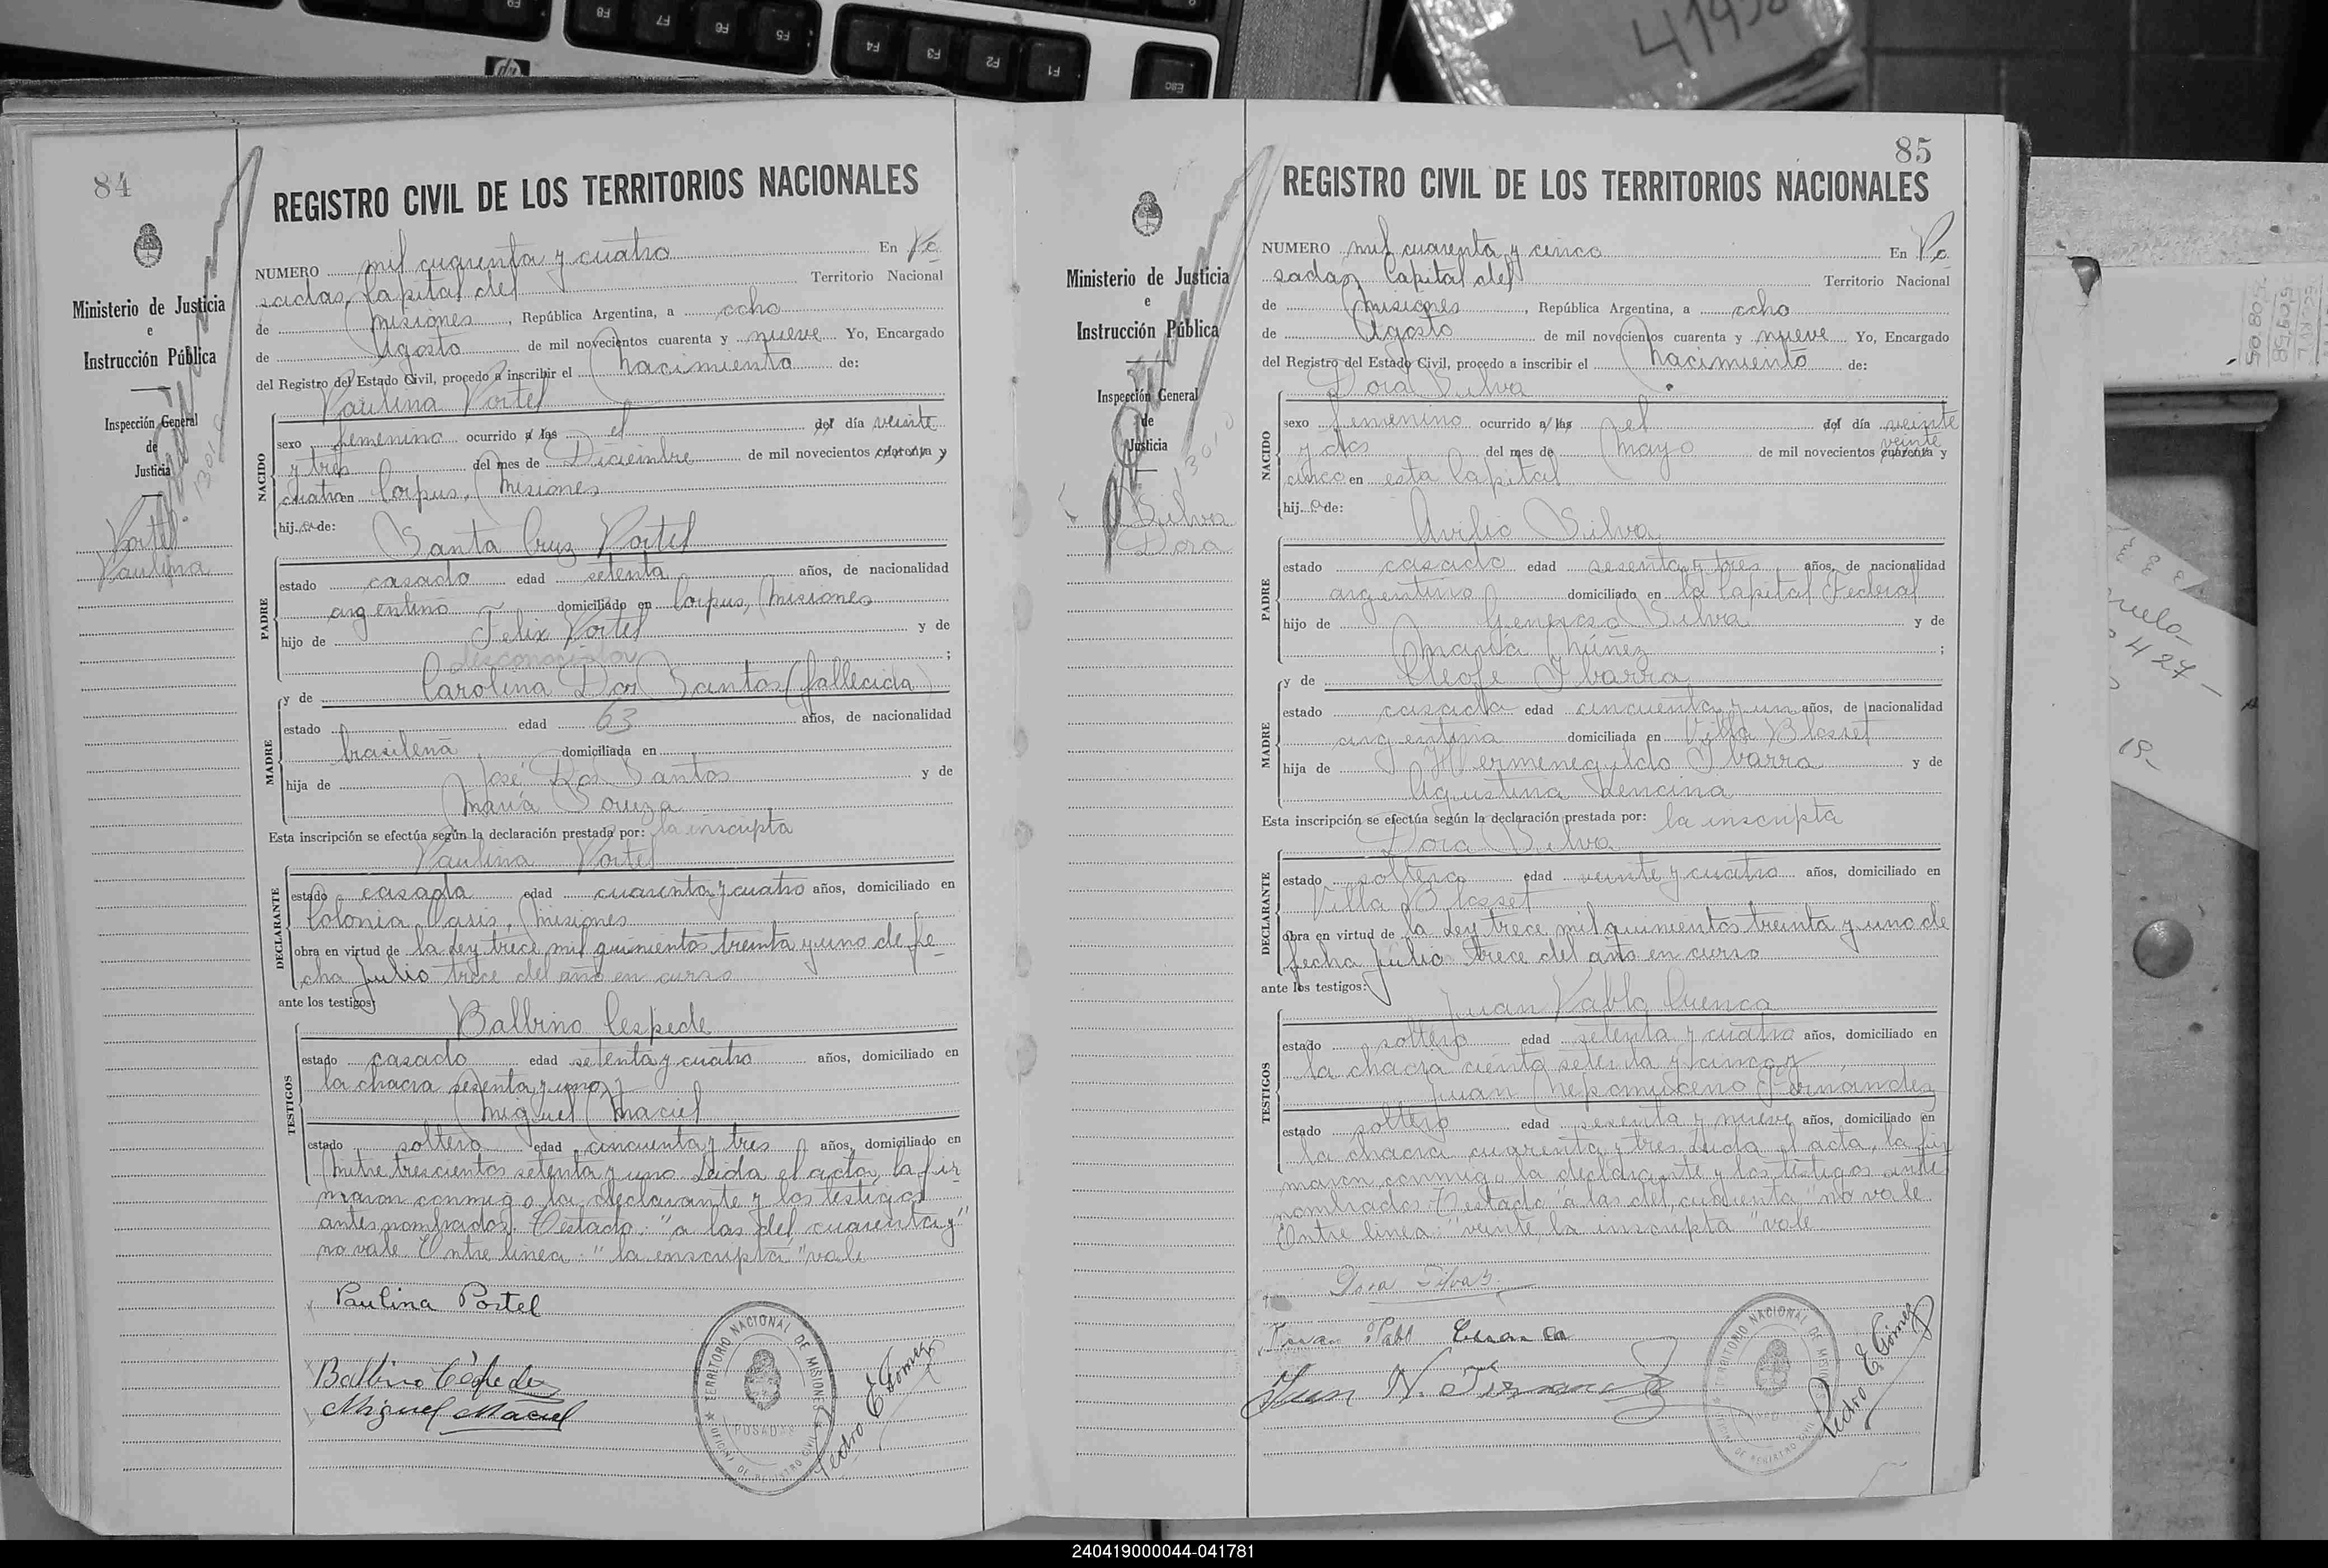 84
Ministerio de Justicia
e
Instrucción Pública
Inspección General
de
Justicia
Portel
Paulina
REGISTRO CIVIL DE LOS TERRITORIOS NACIONALES
NUMERO mil cuarenta y cuatro En Po
sadas, Capital del Territorio Nacional
de Misiones, República Argentina, a ocho
de Agosto de mil novecientos cuarenta y nueve Yo, Encargado
del Registro del Estado Civil, procedo a inscribir el Nacimiento de:
Paulina Portel
NACIDO
sexo femenino ocurrido a las el del día veinte
y tres del mes de Diciembre de mil novecientos cuarenta y
cuatro en Corpus, Misiones
hija de:
Santa Cruz Portel
PADRE
estado casado edad setenta años, de nacionalidad
argentino domiciliado en Corpus, Misiones
hijo de Felix Portel y de
desconocida ;
y de Carolina Dos Santos (fallecida)
MADRE
estado edad 63 años, de nacionalidad
brasilena domiciliada en
hija de José Dos Santos y de
María Souza
Esta inscripción se efectúa según la declaración prestada por: la inscripta
Paulina Portel
DECLARANTE
estado casada edad cuarenta y cuatro años, domiciliado en
Colonia Oasis, Misiones
obra en virtud de la Ley trece mil quinientos treinta y uno de fe
cha Julio trece del año en curso
ante los testigos:
Balbino Cespede
TESTIGOS
estado casado edad setenta y cuatro años, domiciliado en
la chacra sesenta y uno, y
Miguel Maciel
estado soltero edad cincuenta y tres años, domiciliado en
Mitre trescientos setenta y uno Leida el acta, la fir
maron conmigo, la declarante y los testigos
antes nombrados. Testado: "a las del cuarenta y"
no vale. Entre linea: "la enscripta" vale
Paulina Portel
Balbino Céspedes
Miguel Maciel
TERRITORIO NACIONAL DE MISIONES
POSADAS
OFICINA DE REGISTRO CIVIL
Pedro E. Gómez
85
Ministerio de Justicia
e
Instrucción Pública
Inspección General
de
Justicia
Silva
Dora
REGISTRO CIVIL DE LOS TERRITORIOS NACIONALES
NUMERO mil cuarenta y cinco En Po
sadas, Capital del Territorio Nacional
de Misiones, República Argentina, a ocho
de Agosto de mil novecientos cuarenta y nueve Yo, Encargado
del Registro del Estado Civil, procedo a inscribir el Nacimiento de:
Dora Silva
NACIDO
sexo femenino ocurrido a las el del día veinte
veinte
y dos del mes de Mayo de mil novecientos cuarenta y
cinco en esta Capital
hija de:
Avilio Silva
PADRE
estado casado edad sesenta y tres años, de nacionalidad
argentino domiciliado en la Capital Federal
hijo de Generoso Silva y de
María Núñez ;
y de Cleofe Ibarra
MADRE
estado casada edad cincuenta y un años, de nacionalidad
argentina domiciliada en Villa Blosset
hija de Hermenegildo Ibarra y de
Agustina Lencina
Esta inscripción se efectúa según la declaración prestada por: la inscripta
Dora Silva
DECLARANTE
estado soltera edad veinte y cuatro años, domiciliado en
Villa Blosset
obra en virtud de la Ley trece mil quinientos treinta y uno de
fecha Julio trece del año en curso
ante los testigos:
Juan Pablo Cuenca
TESTIGOS
estado soltero edad setenta y cuatro años, domiciliado en
la chacra ciento setenta y cinco y
Juan Nepomuceno Fernández
estado soltero edad sesenta y nueve años, domiciliado en
la chacra cuarenta y tres Leida el acta, la fir
maron conmigo la declarante y los testigos ante
nombrados. Testado "a las del, cuarenta" no vale.
Entre linea: "veinte, la inscripta" vale
Dora Silva
Juan Pabl Cuenca
Juan N. Fernandez
TERRITORIO NACIONAL DE MISIONES
OFICINA DE REGISTRO CIVIL
Pedro E. Gómez
240419000044-041781